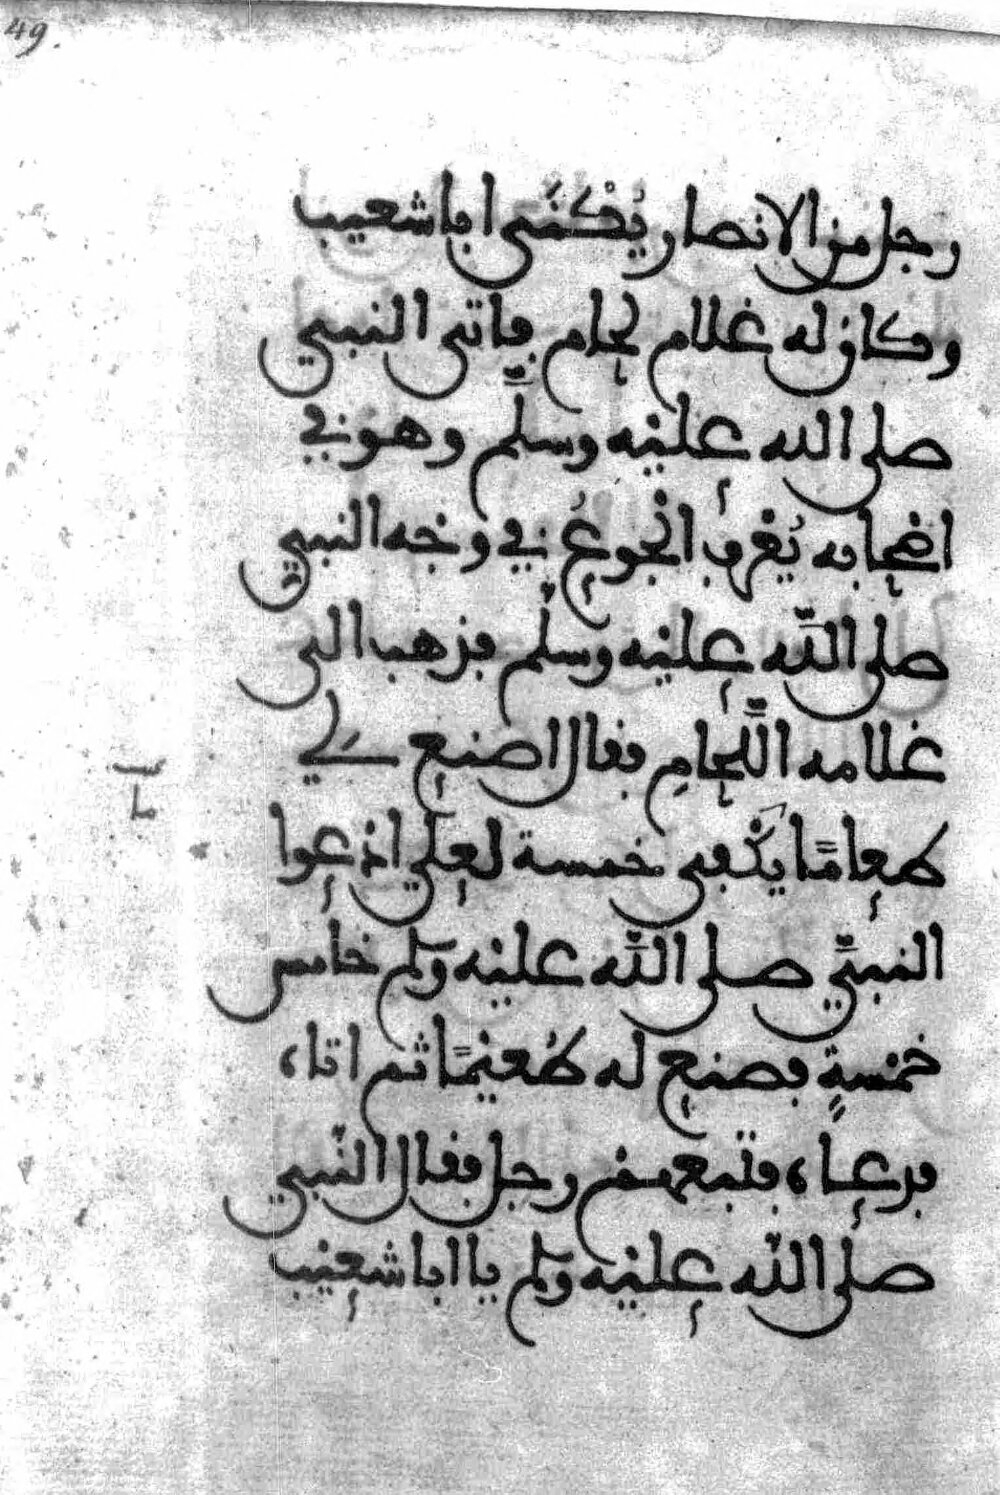 49.
رجل من الانصار يُكْنَى ابا شعيب
وكان له غلام لحام فاتى النبي
صلى الله عليْه وسلَّم وهو في
اصْحابه يُعْرفُ الْجوعُ في وجْه النبيِ
صلى اللَّه عليْه وسلْم فذهب الى
غلامه اللَّحامِ فقال اصنع لي
طعامًا يكْفى خمسة لعلي ادْعوا
النبيَّ صلى اللَّه عليْه وسلم خامس
خمْسةٍ فصنع له طُعيْمًا ثم اتاه
فدعاه فتبعهمْ رجل فقال النَّبي
صلى اللَّه عليْه وسلم يا ابا شعيْب